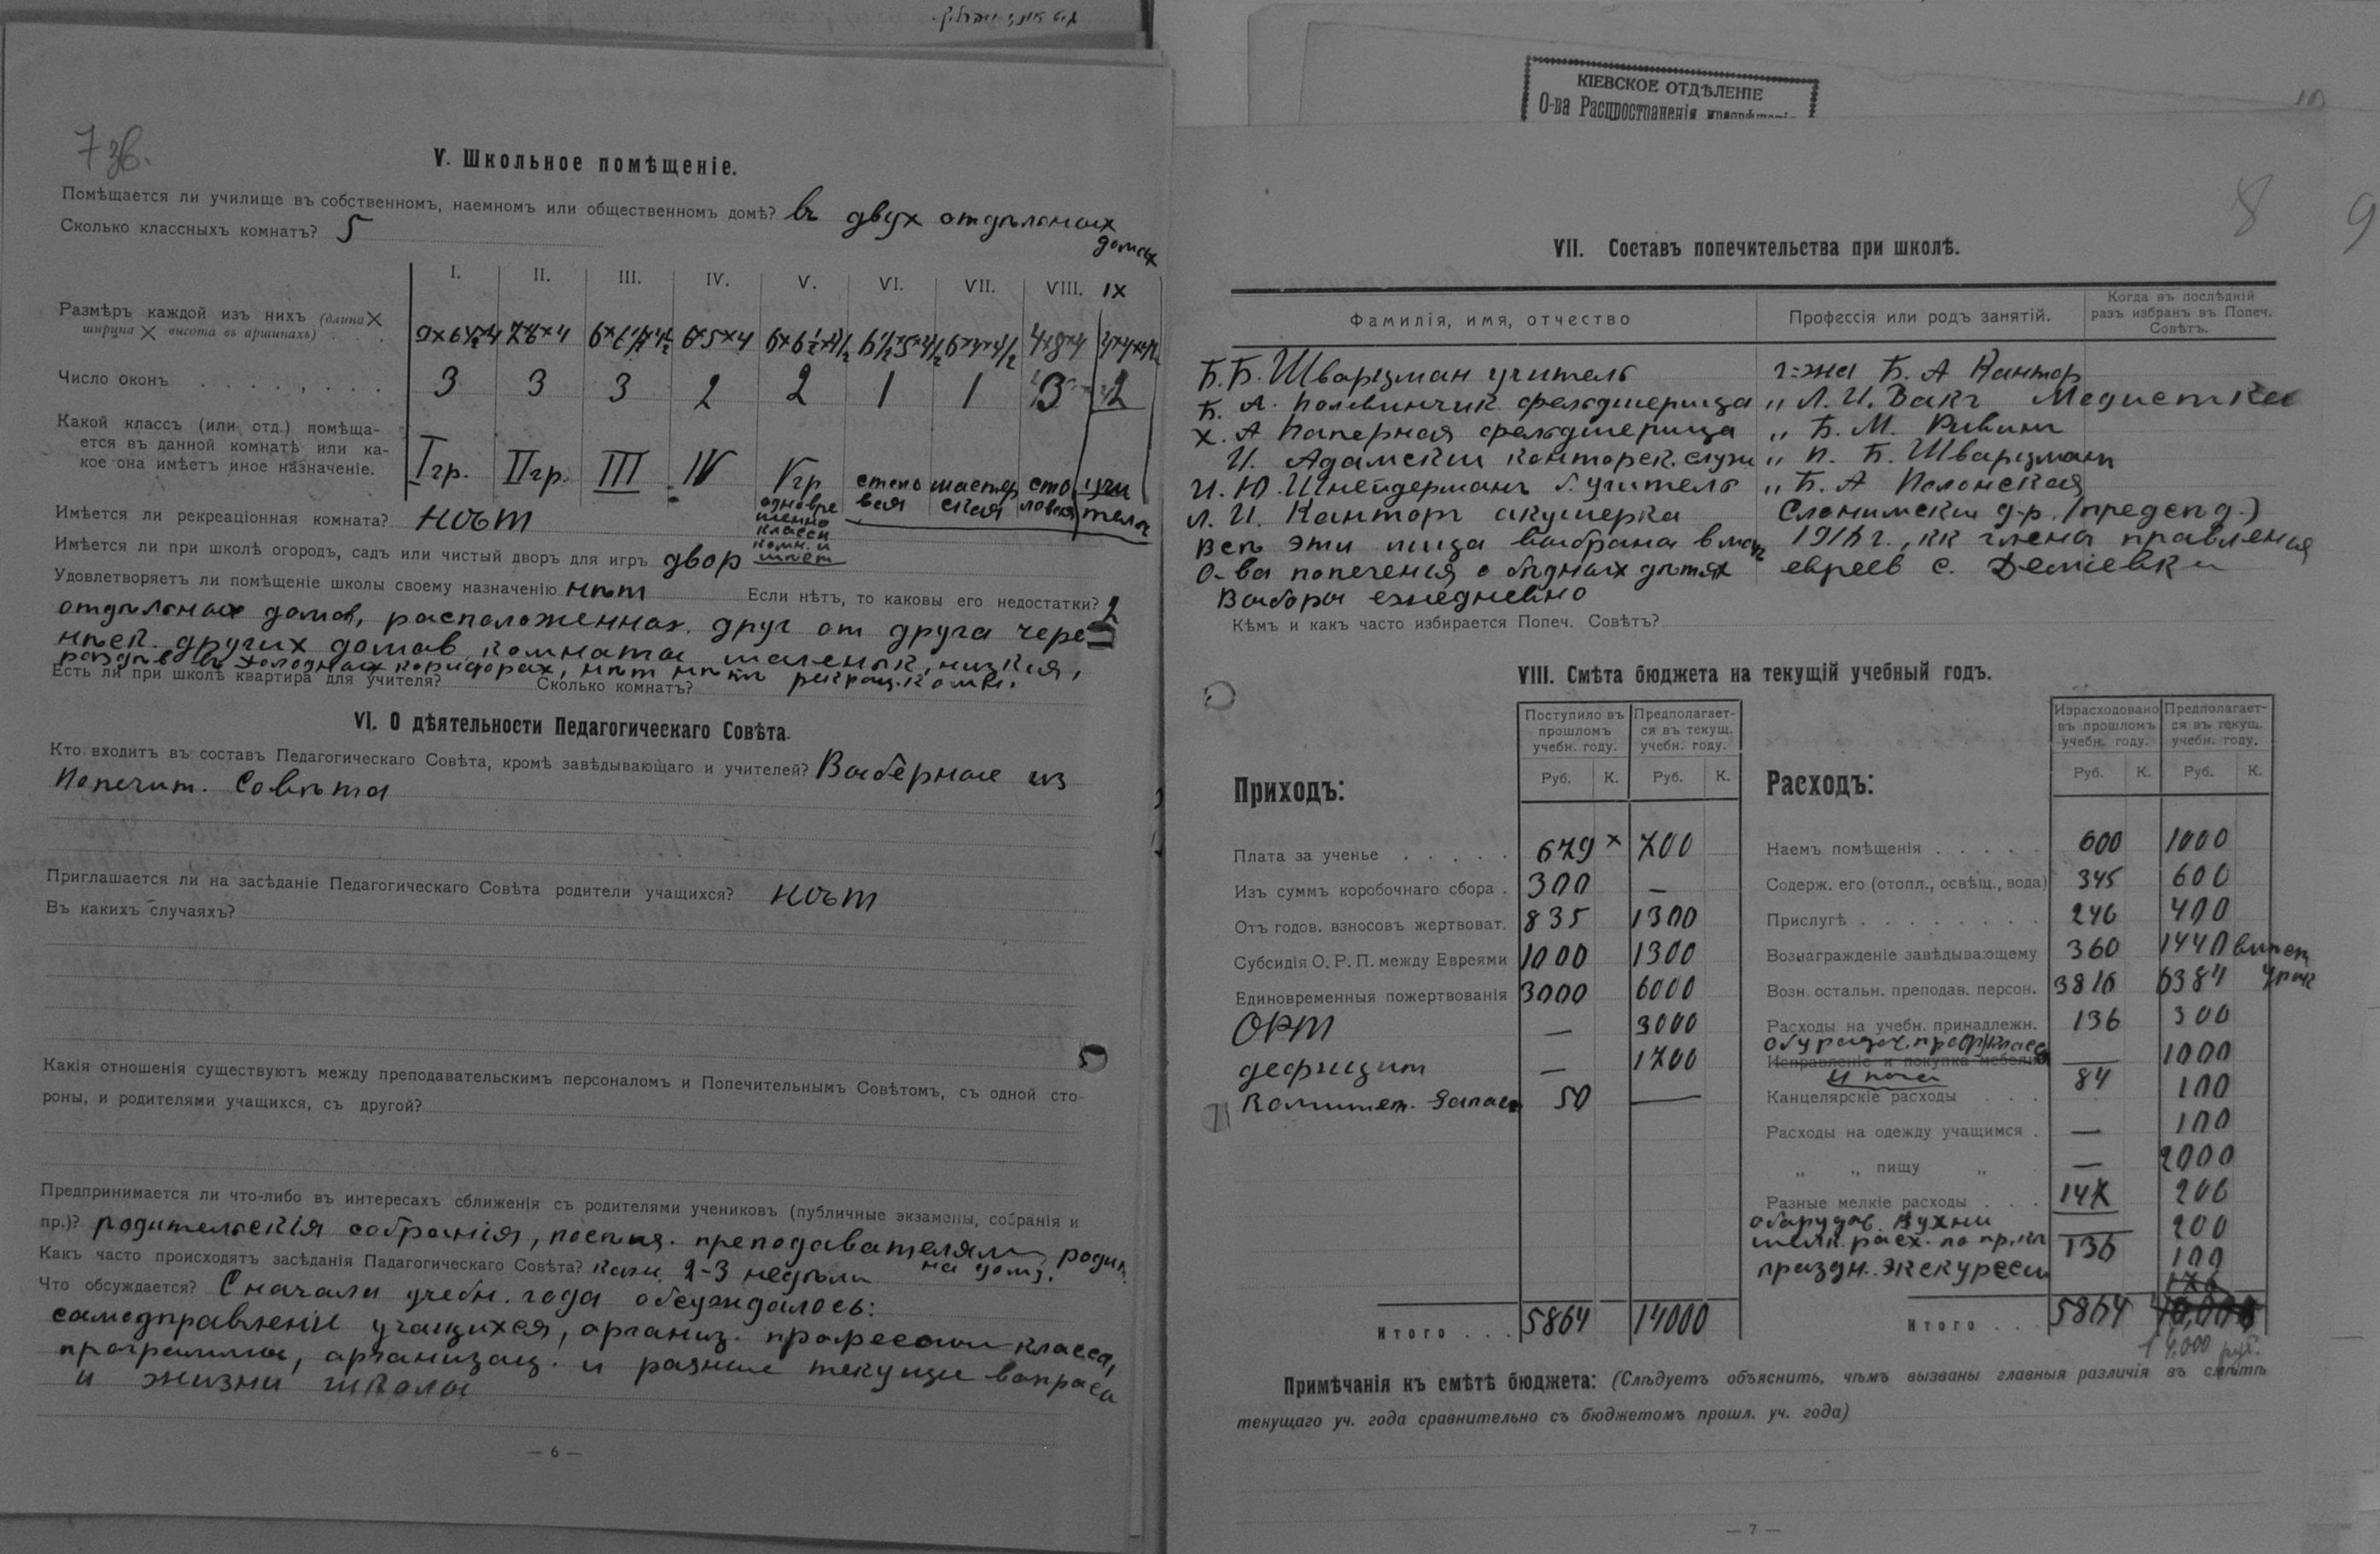 7 зв.
V. Школьное помѣщеніе.
Помѣщается ли училище въ собственномъ, наемномъ или общественномъ домѣ? въ двух отдѣльных
домах
Сколько классныхъ комнатъ? 5
I. II. III. IV. V. VI. VII. VIII. IX
Размѣръ каждой изъ нихъ (длина ×
ширина × высота въ аршинахъ)
6×5×4 4×8×4
Число оконъ 3 3 3 2 2 1 1 3 2
Какой классъ (или отд.) помѣща-
ется въ данной комнатѣ или ка-
кое она имѣетъ иное назначеніе.
I гр. II гр. III IV V гр
одновре
менно
класси
комн. и
мастер
ская
сто
ловая
учи
тел
Имѣется ли рекреаціонная комната? нѣт
Имѣется ли при школѣ огородъ, садъ или чистый дворъ для игръ двор
Удовлетворяетъ ли помѣщеніе школы своему назначенію нѣт Если нѣтъ, то каковы его недостатки? 2
отдѣльных домов, расположенных друг от друга через
нѣск. других домов, комнаты маленьк., низкія,
раздѣв. в холодных коридорах, нѣт рекреац. комн.
Есть ли при школѣ квартира для учителя? Сколько комнатъ?
VI. О дѣятельности Педагогическаго Совѣта.
Кто входитъ въ составъ Педагогическаго Совѣта, кромѣ завѣдывающаго и учителей? Выборные из
Попечит. Совѣта
Приглашается ли на засѣданіе Педагогическаго Совѣта родители учащихся? нѣт
Въ какихъ случаяхъ?
Какія отношенія существуютъ между преподавательскимъ персоналомъ и Попечительнымъ Совѣтомъ, съ одной сто-
роны, и родителями учащихся, съ другой?
Предпринимается ли что-либо въ интересахъ сближенія съ родителями учениковъ (публичные экзамены, собранія и
пр.)? родительскія собранія, посѣщ. преподавателями родит.
на дому.
Какъ часто происходятъ засѣданія Падагогическаго Совѣта? кажд. 2-3 недѣли
Что обсуждается? Сначала учебн. года обсуждалось:
самоуправленіе учащихся, организ. професcион класса,
программы, организац. и разные текущие вопросы
и жизни школы
— 6 —
КІЕВСКОЕ ОТДѢЛЕНІЕ
О-ва Распространенія
8
9
VII. Составъ попечительства при школѣ.
Фамилія, имя, отчество Профессія или родъ занятій. Когда въ послѣдній
разъ избранъ въ Попеч.
Совѣтъ.
Б. Б. Шварцман учитель г-жа Б. А Кантор
Б. А. Полевинчик фельдшерица „ Л. И. Вакс Медистка
Х. А Паперная фельдшерица „ Б. М. Ривин
И. Адамский конторск. служ „ П. Б. Шварцман
И. Ю. Шнейдерман б. учитель „ Б. А Полонская
Л. И. Кантор акушерка Слонимский д-р. (предсѣд.)
Всѣ эти лица выбраны в мат 1916 г., как члены правления
О-ва попечения о бѣдных дѣтях евреев с. Деміевки
Выборы ежедневно
Кѣмъ и какъ часто избирается Попеч. Совѣтъ?
VIII. Смѣта бюджета на текущій учебный годъ.
Поступило въ прошломъ учебн. году. Предполагает-ся въ текущ. учебн. году.
Израсходовано въ прошломъ учебн. году. Предполагает-ся въ текущ. учебн. году.
Приходъ: Руб. К. Руб. К. Расходъ: Руб. К. Руб. К.
Плата за ученье 679 × 700 Наемъ помѣщенія 600 1000
Изъ суммъ коробочнаго сбора 300 — Содерж. его (отопл., освѣщ., вода) 345 600
Отъ годов. взносовъ жертвоват. 835 1300 Прислугѣ 246 400
Субсидія О. Р. П. между Евреями 1000 1300 Вознагражденіе завѣдывающему 360 1440
Единовременныя пожертвованія 3000 6000 Возн. остальн. преподав. персон. 3816 6384
ОРТ — 3000 Расходы на учебн. принадлежн. 136 300
дефицит — 1700 Исправленіе и покупка мебели — 1000
Комитет. Запас 50 — Канцелярскіе расходы 84 100
Расходы на одежду учащимся — 100
„ „ пищу „ — 2000
Разные мелкіе расходы 147 200
оборудов. кухни — 200
мелк. расх. по пр. кл 136 100
праздн. экскурсси
Итого 5864 14000 Итого 5864
14,000 руб.
Примѣчанія къ смѣтѣ бюджета: (Слѣдуетъ объяснить, чѣмъ вызваны главныя различія въ смѣтѣ
текущаго уч. года сравнительно съ бюджетомъ прошл. уч. года)
— 7 —